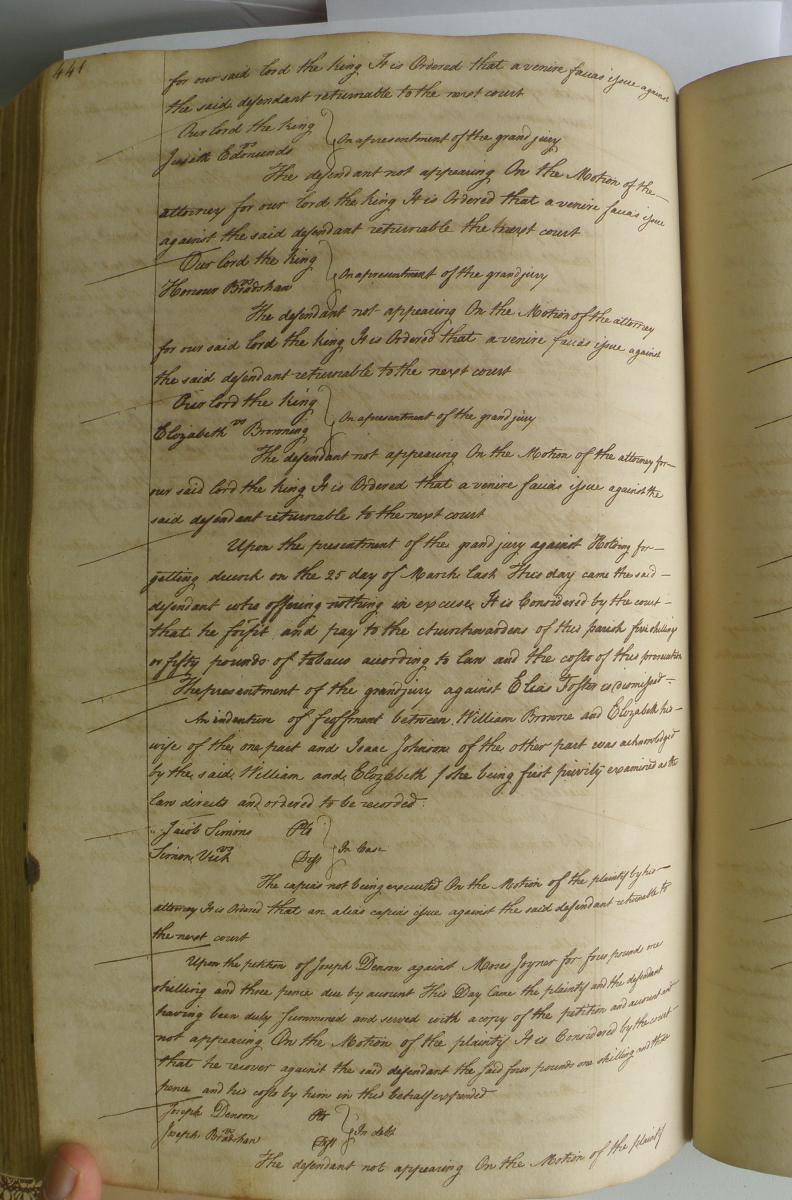 441
for our said lord the king It is Ordered that a venire facias issue against
the said defendant returnable to the next court
Our lord the king
vs } On a presentment of the grand jury
Judith Edmunds
The defendant not appearing On the Motion of the
attorney for our lord the king It is Ordered that a venire facias issue
against the said defendant returnable the next court
Our lord the king
vs } On a presentment of the grand jury
Honour Bradshaw
The defendant not appearing On the Motion of the attorney
for our said lord the king It is Ordered that a venire facias issue against
the said defendant returnable to the next court
Our lord the king
vs } On a presentment of the grand jury
Elizabeth Browning
The defendant not appearing On the Motion of the attorney for
our said lord the king It is Ordered that a venire facias issue against the
said defendant returnable to the next court
Upon the presentment of the grand jury against for
getting drunk on the 25 day of March last This day came the said
defendant who offering nothing in excuse It is Considered by the court
that he forfit and pay to the churchwardens of this parish five shillings
or fifty pounds of tobacco according to law and the costs of this prosecution
The presentment of the grand jury against Elias Foster is dismissed
An indenture of feoffment between William Browne and Elizabeth his
wife of the one part and Isaac Johnson of the other part was acknowledged
by the said William and Elizabeth / she being first privily examined as the
law directs and ordered to be recorded
Jacob Simons Plt
vs } In Case
Simon Vick Deft
The capias not being executed On the Motion of the plaintif by his
attorney It is Ordered that an alias capias issue against the said defendant returnable to
the next court
Upon the petition of Joseph Denson against Moses Joyner for four pound one
shilling and three pence due by account This Day Came the plaintif and the defendant
having been duly summoned and served with a copy of the petition and account and
not appearing On the Motion of the plaintif It is Considered by the court
that he recover against the said defendant the said four pounds one shilling and three
pence and his costs by him in this behalf expended
Joseph Denson Plt
vs } In debt
Joseph Bradshaw Deft
The defendant not appearing On the Motion of the plaintif